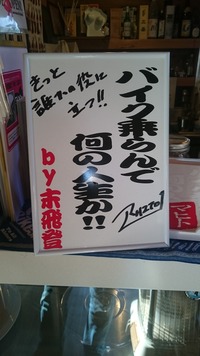 きっと
誰かの役に
立つ!!
バイク乗らんで
何の人生か!!
by末飛登